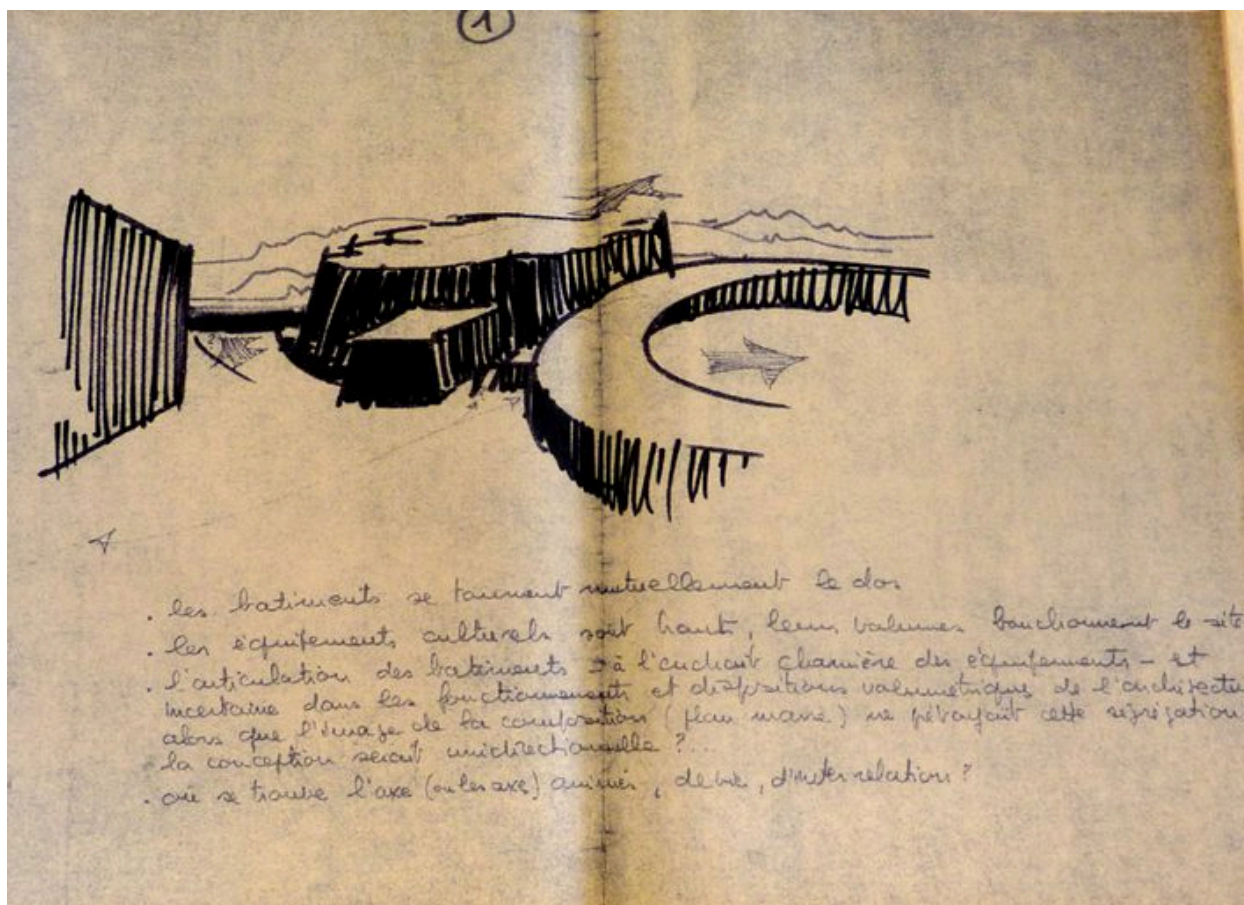 1
. les batiments se tournent mutuellement le dos
. les équipements culturels sont hauts, leurs volumes bouchonnent le site
. l'articulation des batiments à l'endroit charnière des équipements - et
incertaine dans les fonctionnements et dispositions volumétrique de l'architecture
alors que l'image de la composition (plan masse) ne cette ségrégation
la conception serait unidirectionnelle ?...
. où se trouve l'axe (ou les axe) animés, de vie, d'inter relation ?